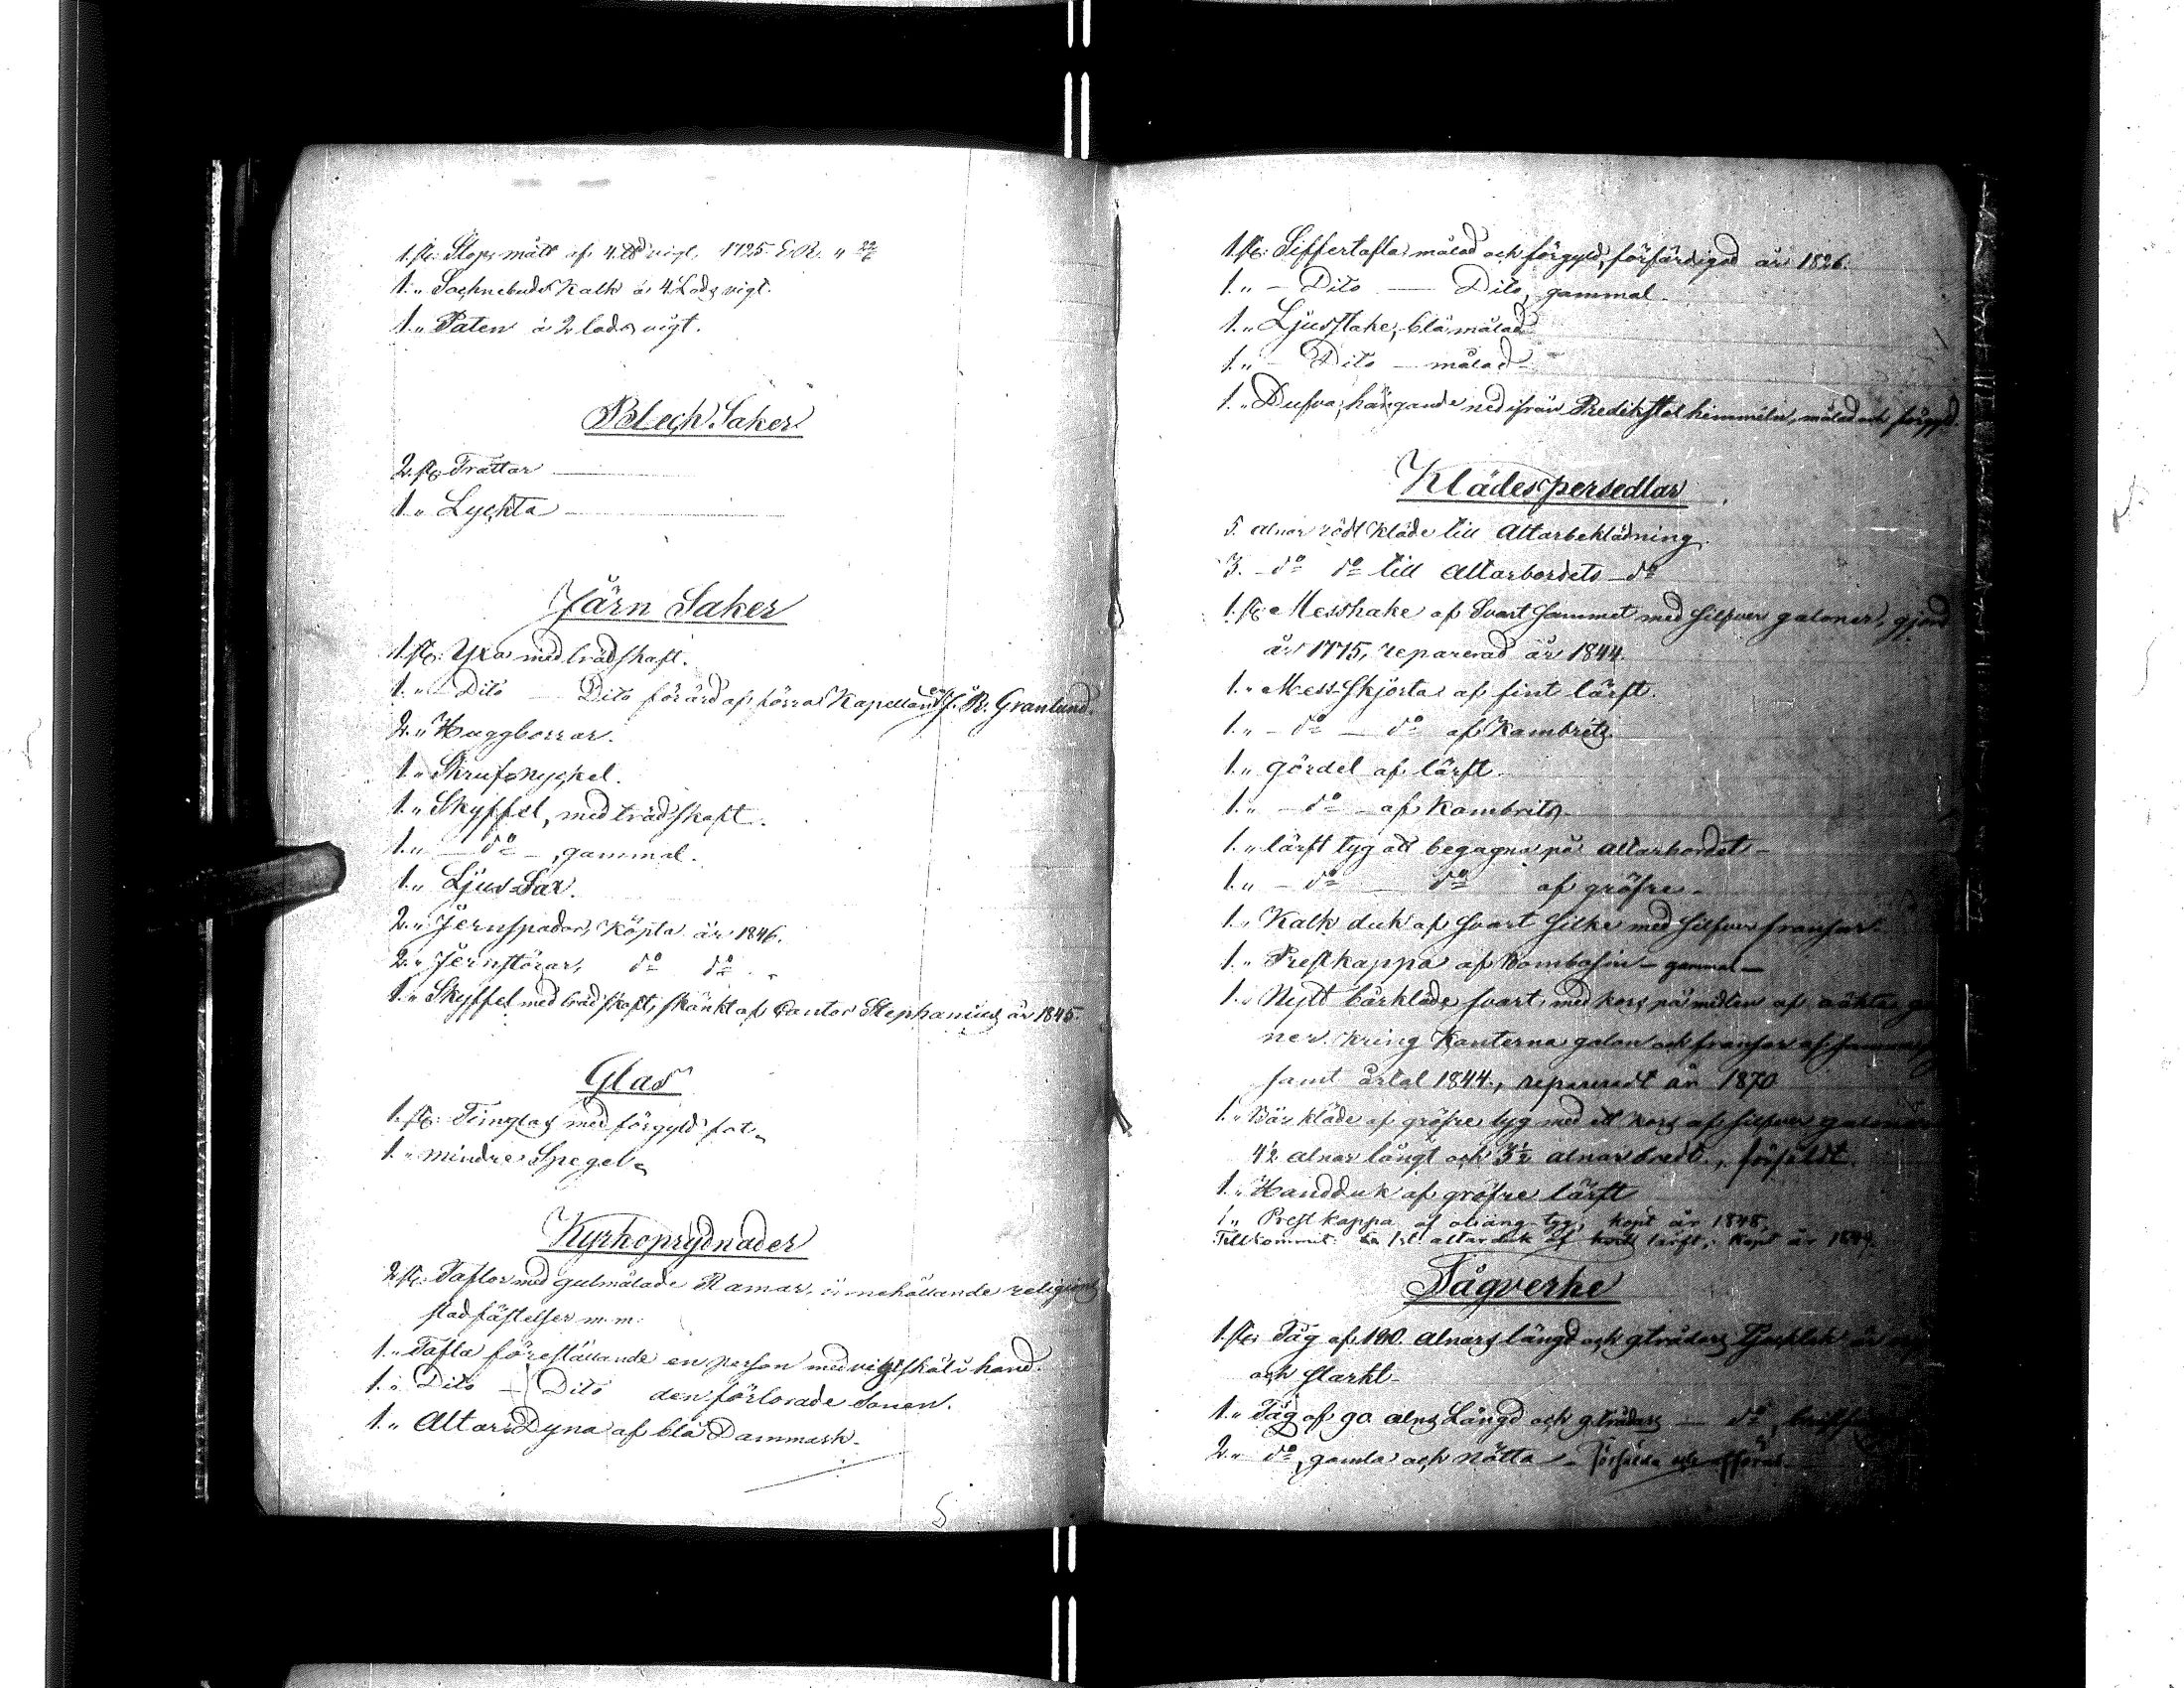 1. st: Stops mått af 4. ℔ vigt. 1725. E.R. "
1. " Sochnebuds Kalk à 4 Lods vigt.
1. " Paten à 2 lods vigt.
Blech Saker
2. st: Trattar
1. " Lyckta
Järn Saker
1. st: Yxa med trädskaft.
1. " - Dito - Dito förärd af förra Kapellan J. B. Granlund.
2. " Huggborrar.
1. " Skrufnyckel.
1. " Skyffel, med trädskaft.
1. " - do -, gammal.
1. " Ljus-Sax.
2. " Jernspadar, Köpta år 1846.
2. " Jernstörar, do do
1. " Skyffel med trädskaft, skänkt af Cantor Stephanius år 1845.
Glas
1. st: Timglas med förgyld fot
1. " mindre Spegel
Kyrkoprydnader
2. st: Taflor med gulmålade Ramar, innehållande religions
stadfästelser m.m.
1. " Tafla föreställande en person med vigtskål i hand.
1. " Dito - Dito den förlorade Sonen.
1. " Altare Dyna af blå Dammask.
5
1. st: Siffertafla målad och förgyld, förfärdigad år 1826.
1. " - Dito - Dito, gammal
1. " Ljusstake, blåmålad
1. " - Dito - målad
1. " Dufva, hängande ned ifrån Predikstol himmeln, målad och förgyld
Klädespersedlar
5. alnar rödt Kläde till Altarbeklädning
3. - do do till Altarbordets do
1. st: Messhake af Svart Sammet med Silfver galoner, gjord
år 1775, reparerad år 1844.
1. " Mess-Skjorta af fint lärft.
1. " - do - do af Kambrits.
1. " Gördel af lärft.
1. " - do - af Kambrits
1. " lärft tyg att begagna på altarbordet -
1. " - do - do af gröfre -
1. " Kalk duk af Svart Silke med Silfver fransar
1. " Prestkappa af Bombasin - gammal -
1. " Nytt bårkläde svart, med kors på midten af oäkta
ner. Kring Kanterna galon och fransar af
samt årtal 1844., repareradt år 1870
1. " Bår kläde af gröfre tyg med ett kors af silfver galoner
4½ alnar långt och 3½ alnar bredt., försåldt.
1. " Handduk af gröfre lärft
1 " Prestkappa af tyg, köpt år 1848.
Tillkommit: altarduk af lärft, Köpt år
Tågverke
1. st: Tåg af 100. Alnars längd och 9 tråders Tjocklek
och starkt -
1. " Tåg af 90. alns Längd och 9. tråders - do,
2. " do, gamla och nötta - försålda och afförda